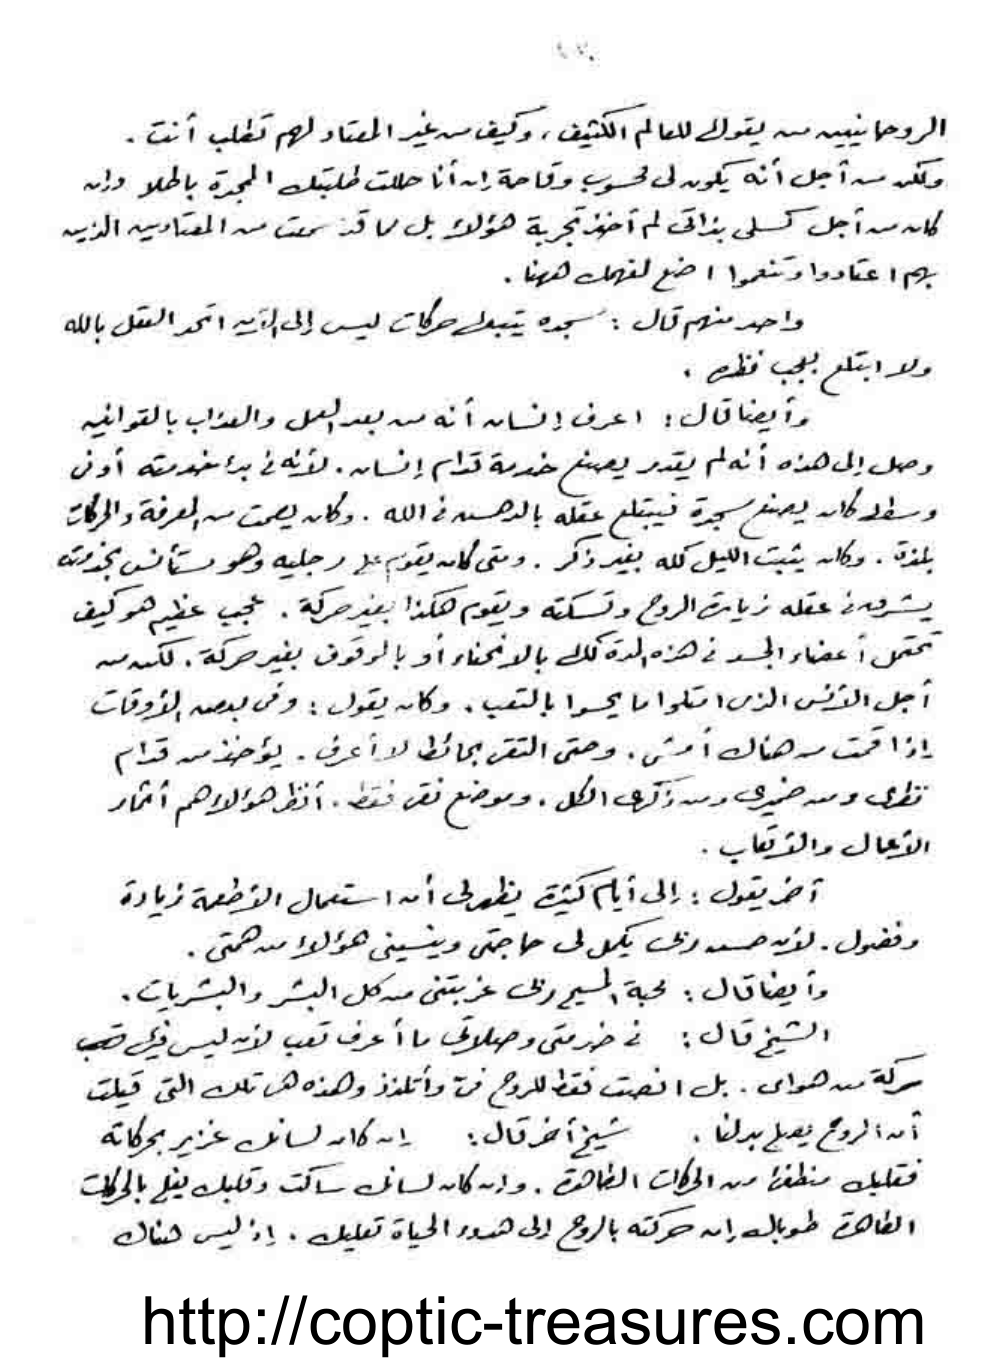 الروحانيين من يقول للعالم الكثيف، وكيف من غير المعتاد لهم تطلب أنت.
ولكن من أجل أنه يكون لى محسوب وقاحة إن أنا حللت طلبتك المجدة باطلا وإن
كان من أجل كسلى بذاتى لم أخذ تجربة هؤلاء بل مما قد سمعت من المعتادين الذين
بهم اعتادوا وتنعموا اضع لفهمك ههنا.
واحد منهم قال : سجده يتبعها حركات ليس إلى الآن اتحد العقل بالله
ولا ابتلع بعجب نظره.
وأيضا قال : اعرف إنسان أنه من بعد العمل والعذاب بالقوانين
وصل إلى هذه أنه لم يقدر يصنع خدمة قدام إنسان. لأنه فى بدء خدمته أو فى
وسطها كان يصنع سجدة فيبتلع عقله بالدهس فى الله. وكان يصمت من المعرفة والحركات
بلذة. وكان يثبت الليل كله بغير ذكر. ومتى كان يقوم على رجليه وهو مستأنس بخدمته
يشرق فى عقله زيارت الروح وتسكته ويقوم هكذا بغير حركة. عجب عظيم هو كيف
تحتمل أعضاء الجسد فى هذه المدة كلها بالانحناء أو بالوقوف بغير حركة. لكن من
أجل الأنس الذى امتلوا ما يحسوا بالتعب. وكان يقول : وفى بعض الأوقات
إذا قمت من هناك أمشى. وحتى التقى بحائط لا أعرف. يؤخذ من قدام
نظرى ومن ضميرى ومن ذكرى الكل. وموضع نقى فقط. أنظر هؤلاء هم أثمار
الأعمال والأتعاب.
أخر يقول : إلى أيام كثيرة يظهر لى أن استعمال الأطعمة زيادة
وفضول. لأن حسن ربى يكمل لى حاجتى وينسينى هؤلاء من همتى.
وأيضا قال : محبة المسيح ربى غربتنى من كل البشر والبشريات.
الشيخ قال : فى خدمتى وصلاتى ما أعرف تعب لأن ليس فيها
حركة من هواى. بل انصت فقط للروح فىّ وأتلذذ وهذه هى تلك التى قيلت
أن الروح يصلى بدلنا. شيخ أخر قال : إن كان لسانك عزير بحركاته
فقلبك منطفئ من الحركات الطاهرة. وإن كان لسانك ساكت وقلبك يغلى بالحركات
الطاهرة طوباك إن حركته بالروح إلى هدوء الحياة تعليك. إذ ليس هناك
http://coptic-treasures.com